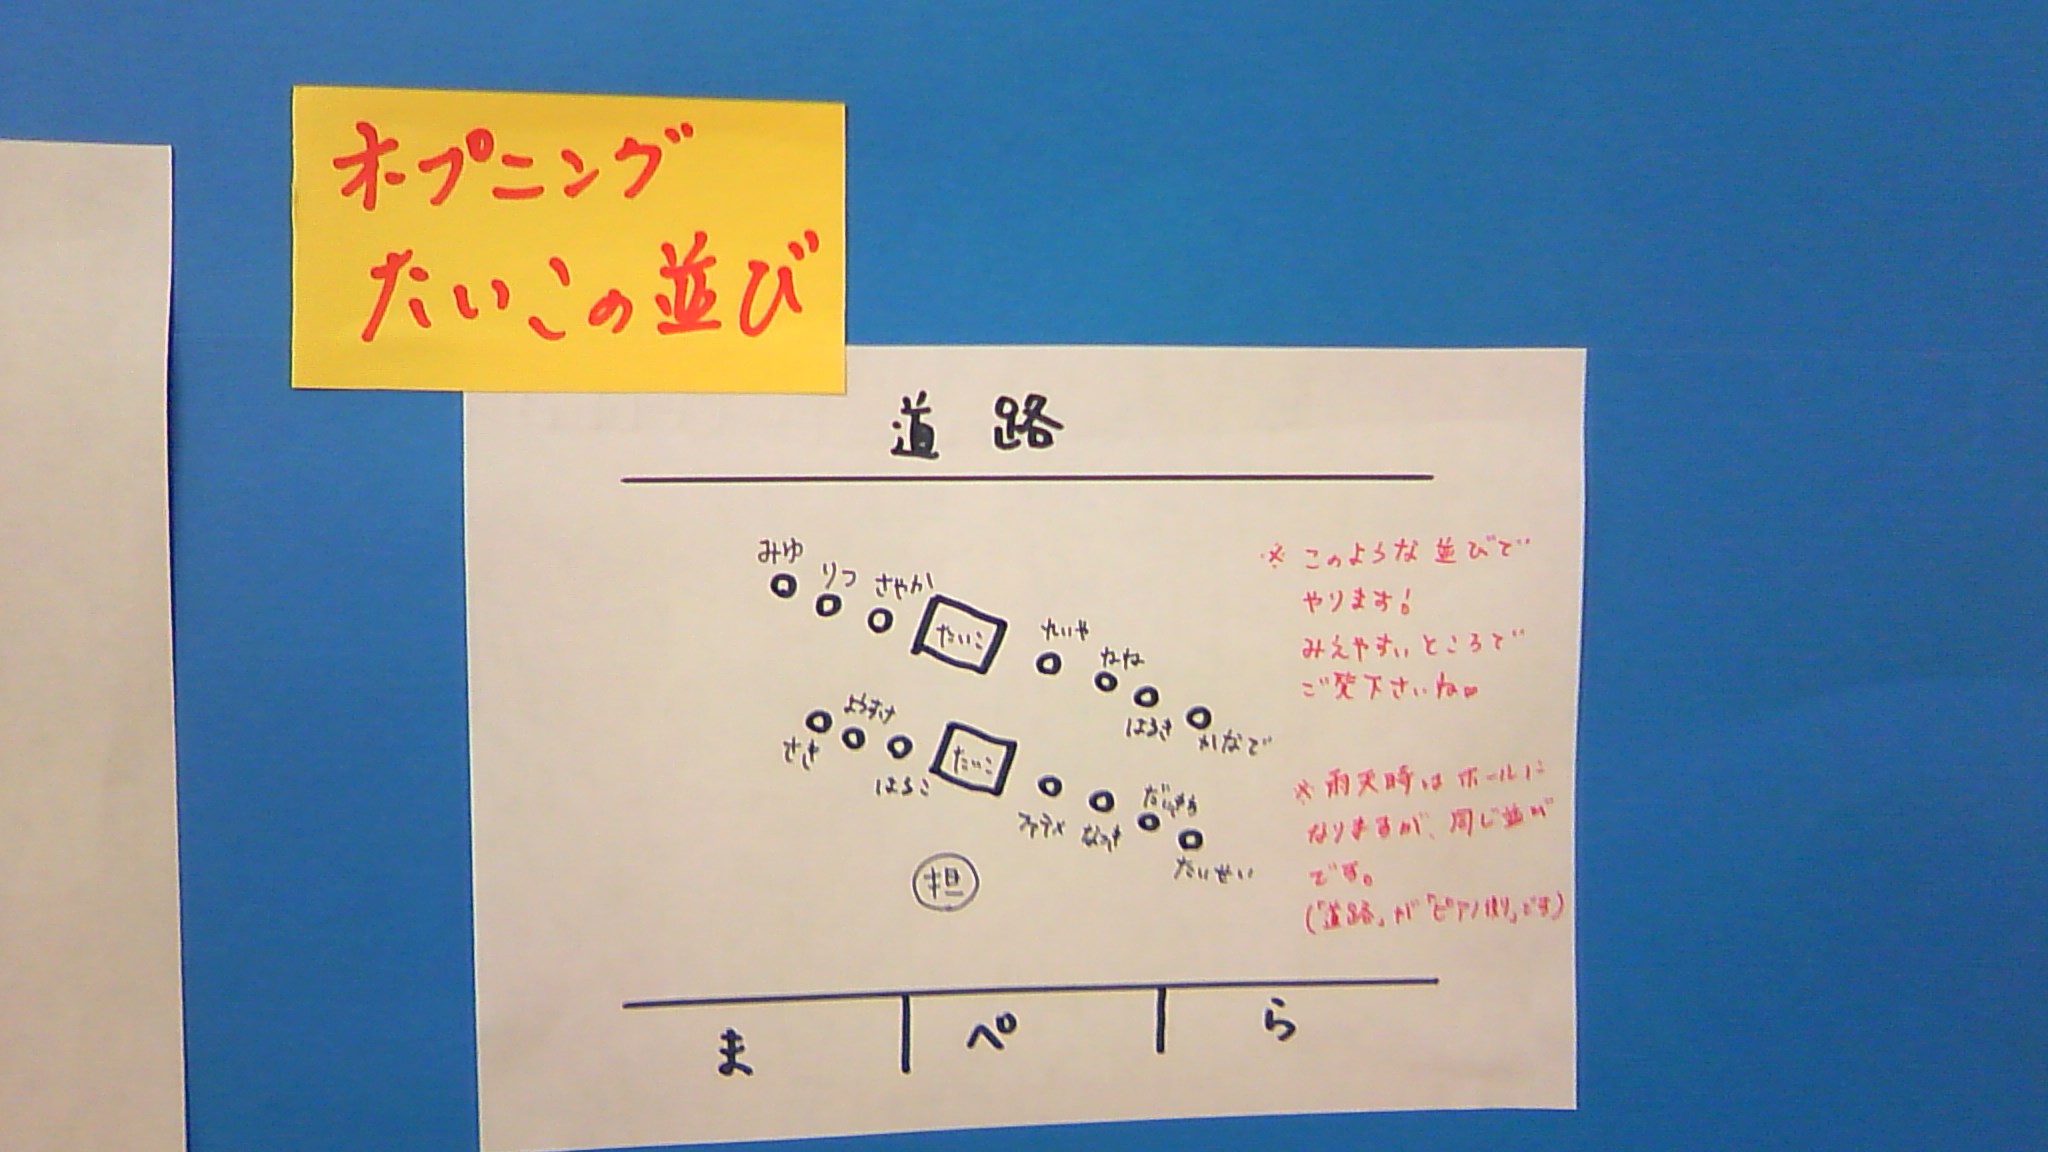 オープニング
たいこの並び
道路
みゆ
りつ
さやか
たいこ
れいや
ねね
はるき
かなで
ようすけ
さき
はるこ
たいこ
ファティメ
なつき
たいせい
担
※このような並びで
やります!
みえやすいところで
ご覧下さいね。
※雨天時はホールに
なりますが、同じ並び
です。
(「道路」が「ピアノ側」です)
ま
ぺ
ら